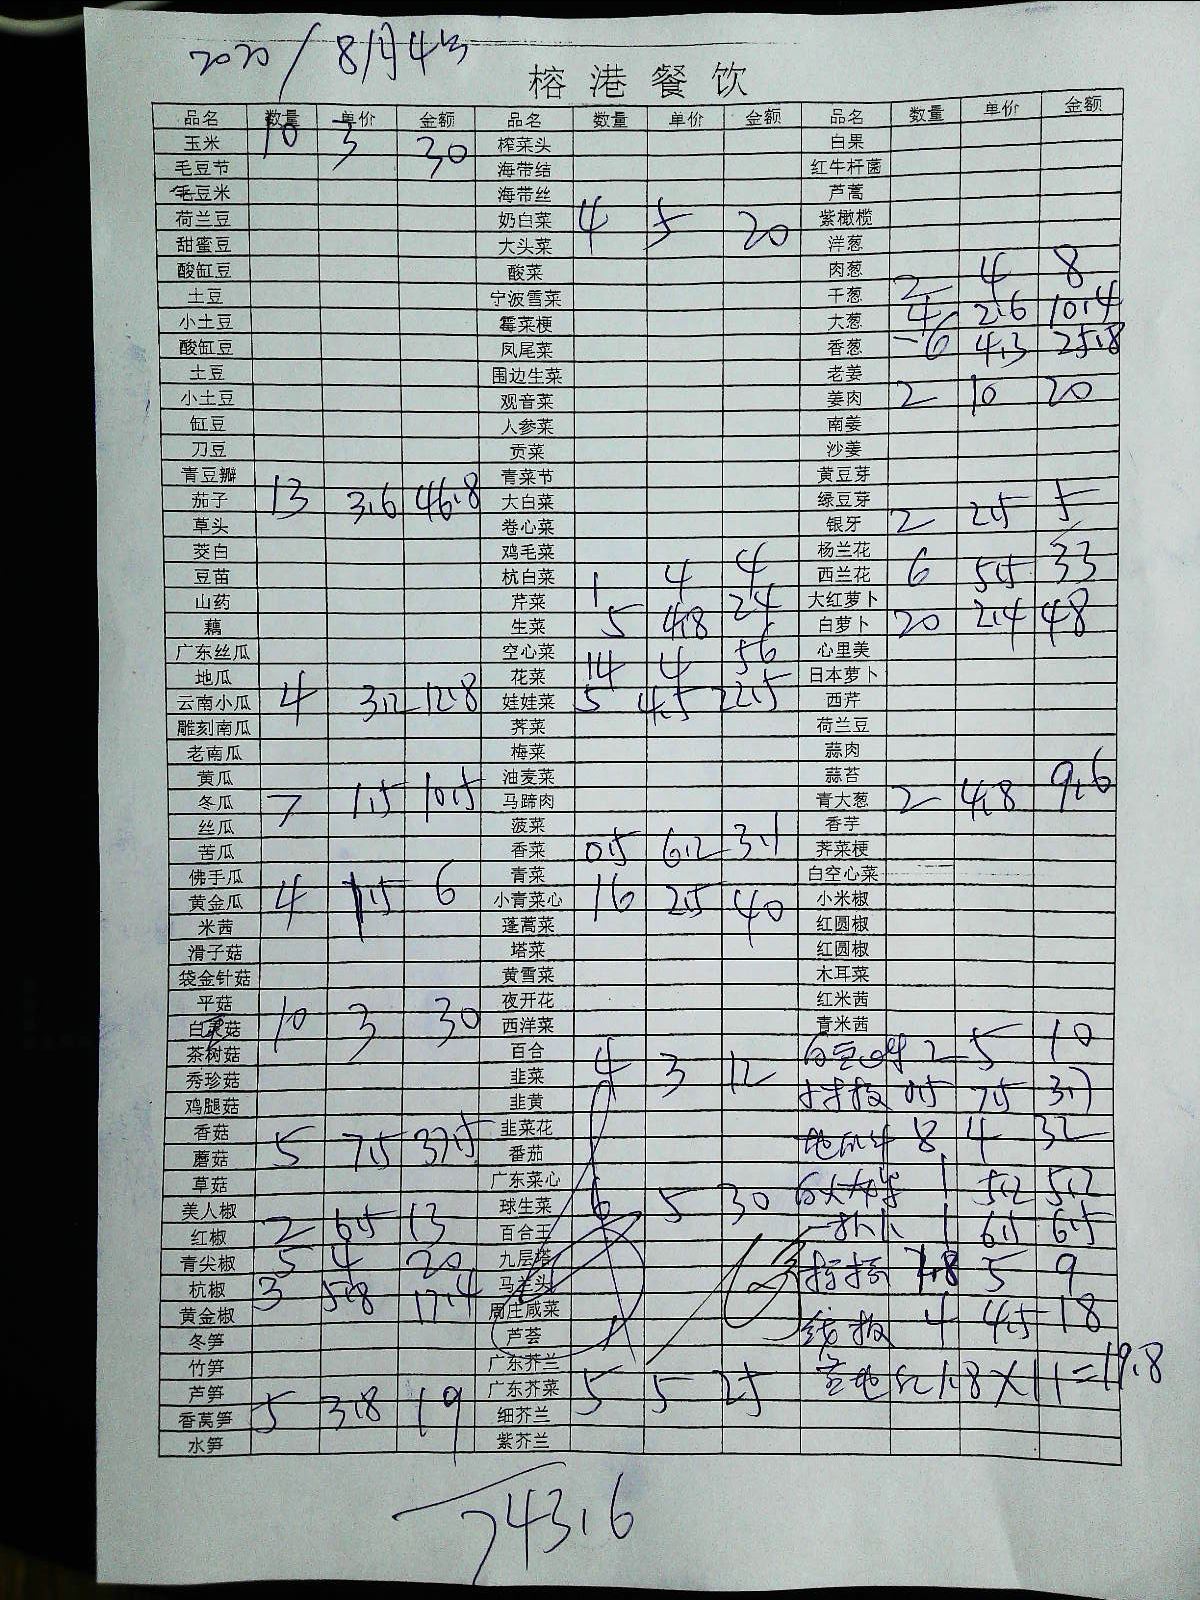 2020/8月4号
榕港餐饮
品名 数量 单价 金额 品名 数量 单价 金额 品名 数量 单价 金额
玉米 10 3 30 榨菜头 白果
毛豆节 海带结 红牛杆菌
毛豆米 海带丝 芦蒿
荷兰豆 奶白菜 4 5 20 紫橄榄
甜蜜豆 大头菜 洋葱
酸缸豆 酸菜 肉葱
土豆 宁波雪菜 干葱 2 4 8
小土豆 霉菜梗 大葱 4 2.6 10.4
酸缸豆 凤尾菜 香葱 6 4.3 25.8
土豆 围边生菜 老姜
小土豆 观音菜 姜肉 2 10 20
缸豆 人参菜 南姜
刀豆 贡菜 沙姜
青豆瓣 青菜节 黄豆芽
茄子 13 3.6 46.8 大白菜 绿豆芽
草头 卷心菜 银牙 2 2.5 5
茭白 鸡毛菜 杨兰花
豆苗 杭白菜 1 4 4 西兰花 6 5.5 33
山药 芹菜 大红萝卜
藕 生菜 5 4.8 24 白萝卜 20 2.4 48
广东丝瓜 空心菜 心里美
地瓜 花菜 14 4 56 日本萝卜
云南小瓜 4 3.2 12.8 娃娃菜 5 4.5 22.5 西芹
雕刻南瓜 荠菜 荷兰豆
老南瓜 梅菜 蒜肉
黄瓜 油麦菜 蒜苔
冬瓜 7 1.5 10.5 马蹄肉 青大葱 2 4.8 9.6
丝瓜 菠菜 香芋
苦瓜 香菜 0.5 6.2 3.1 荠菜梗
佛手瓜 青菜 白空心菜
黄金瓜 4 1.5 6 小青菜心 16 2.5 40 小米椒
米茜 蓬蒿菜 红圆椒
滑子菇 塔菜 红圆椒
袋金针菇 黄雪菜 木耳菜
平菇 夜开花 红米茜
白灵菇 10 3 30 西洋菜 青米茜
茶树菇 百合 2 5 10
秀珍菇 韭菜 4 3 12
鸡腿菇 韭黄 0.5 7.5 3.7
香菇 韭菜花
蘑菇 5 7.5 37.5 番茄 8 4 32
草菇 广东菜心
美人椒 球生菜 6 5 30 1 5.2 5.2
红椒 2 6.5 13 百合王 1 6.5 6.5
青尖椒 5 4 20 九层塔
杭椒 3 5.8 17.4 马兰头 1.8 5 9
黄金椒 周庄咸菜
冬笋 芦荟 4 4.5 18
竹笋 广东芥兰
芦笋 广东芥菜 5 5 25 1.8×11=19.8
香莴笋 5 3.8 19 细芥兰
水笋 紫芥兰
743.6